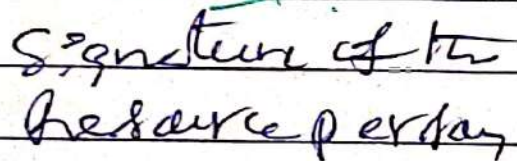 Signature of the
Resource person